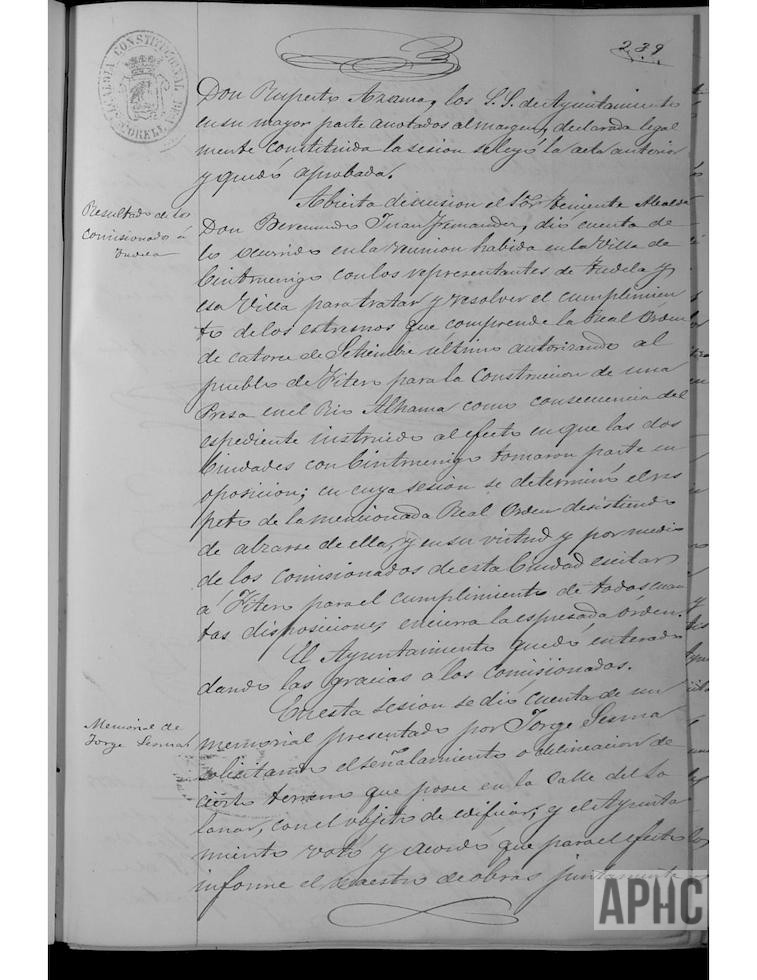 239
ALCALDIA CONSTITUCIONAL DE CORELLA
Don Ruperto Arzama, los S.S. de Ayuntamiento
en su mayor parte anotados al margen, declarada legal
mente constituida la sesion se leyó la acta anterior
y quedó aprobada.
Resultado de los
Comisionados á
Tudela
Abierta discusion el Sor. Teniente Alcalde
Don Beremundo Juan Fernandez, dió cuenta de
lo ocurrido en la reunion habida en la Villa de
Cintruenigo con los representantes de Tudela y
esa Villa para tratar y resolver el cumplimien
to de los estremos que comprende la Real Orden
de catorce de Setiembre último autorizando al
pueblo de Fitero para la Construcion de una
Presa en el Rio Alhama como consecuencia del
espediente instruido al efecto en que las dos
Ciudades con Cintruenigo tomaron parte en
oposicion; en cuya sesion se determinó el res
peto de la mencionada Real Orden desistiendo
de alzarse de ella, y en su virtud y por medio
de los comisionados de esta Ciudad escitar
á Fitero para el cumplimiento de todas cuan
tas disposiciones encierra la espresada orden.
El Ayuntamiento quedó enterado
dando las gracias a los comisionados.
Memorial de
Jorge Sesma
En esta sesion se dió cuenta de un
memorial presentado por Jorge Sesma
solicitando el señalamiento o delineacion de
cierto terreno que posee en la Calle del So
lanar, con el objeto de edificar, y el Ayunta
miento votó y acordó que para el efecto
informe el maestro de obras juntamente
APHC